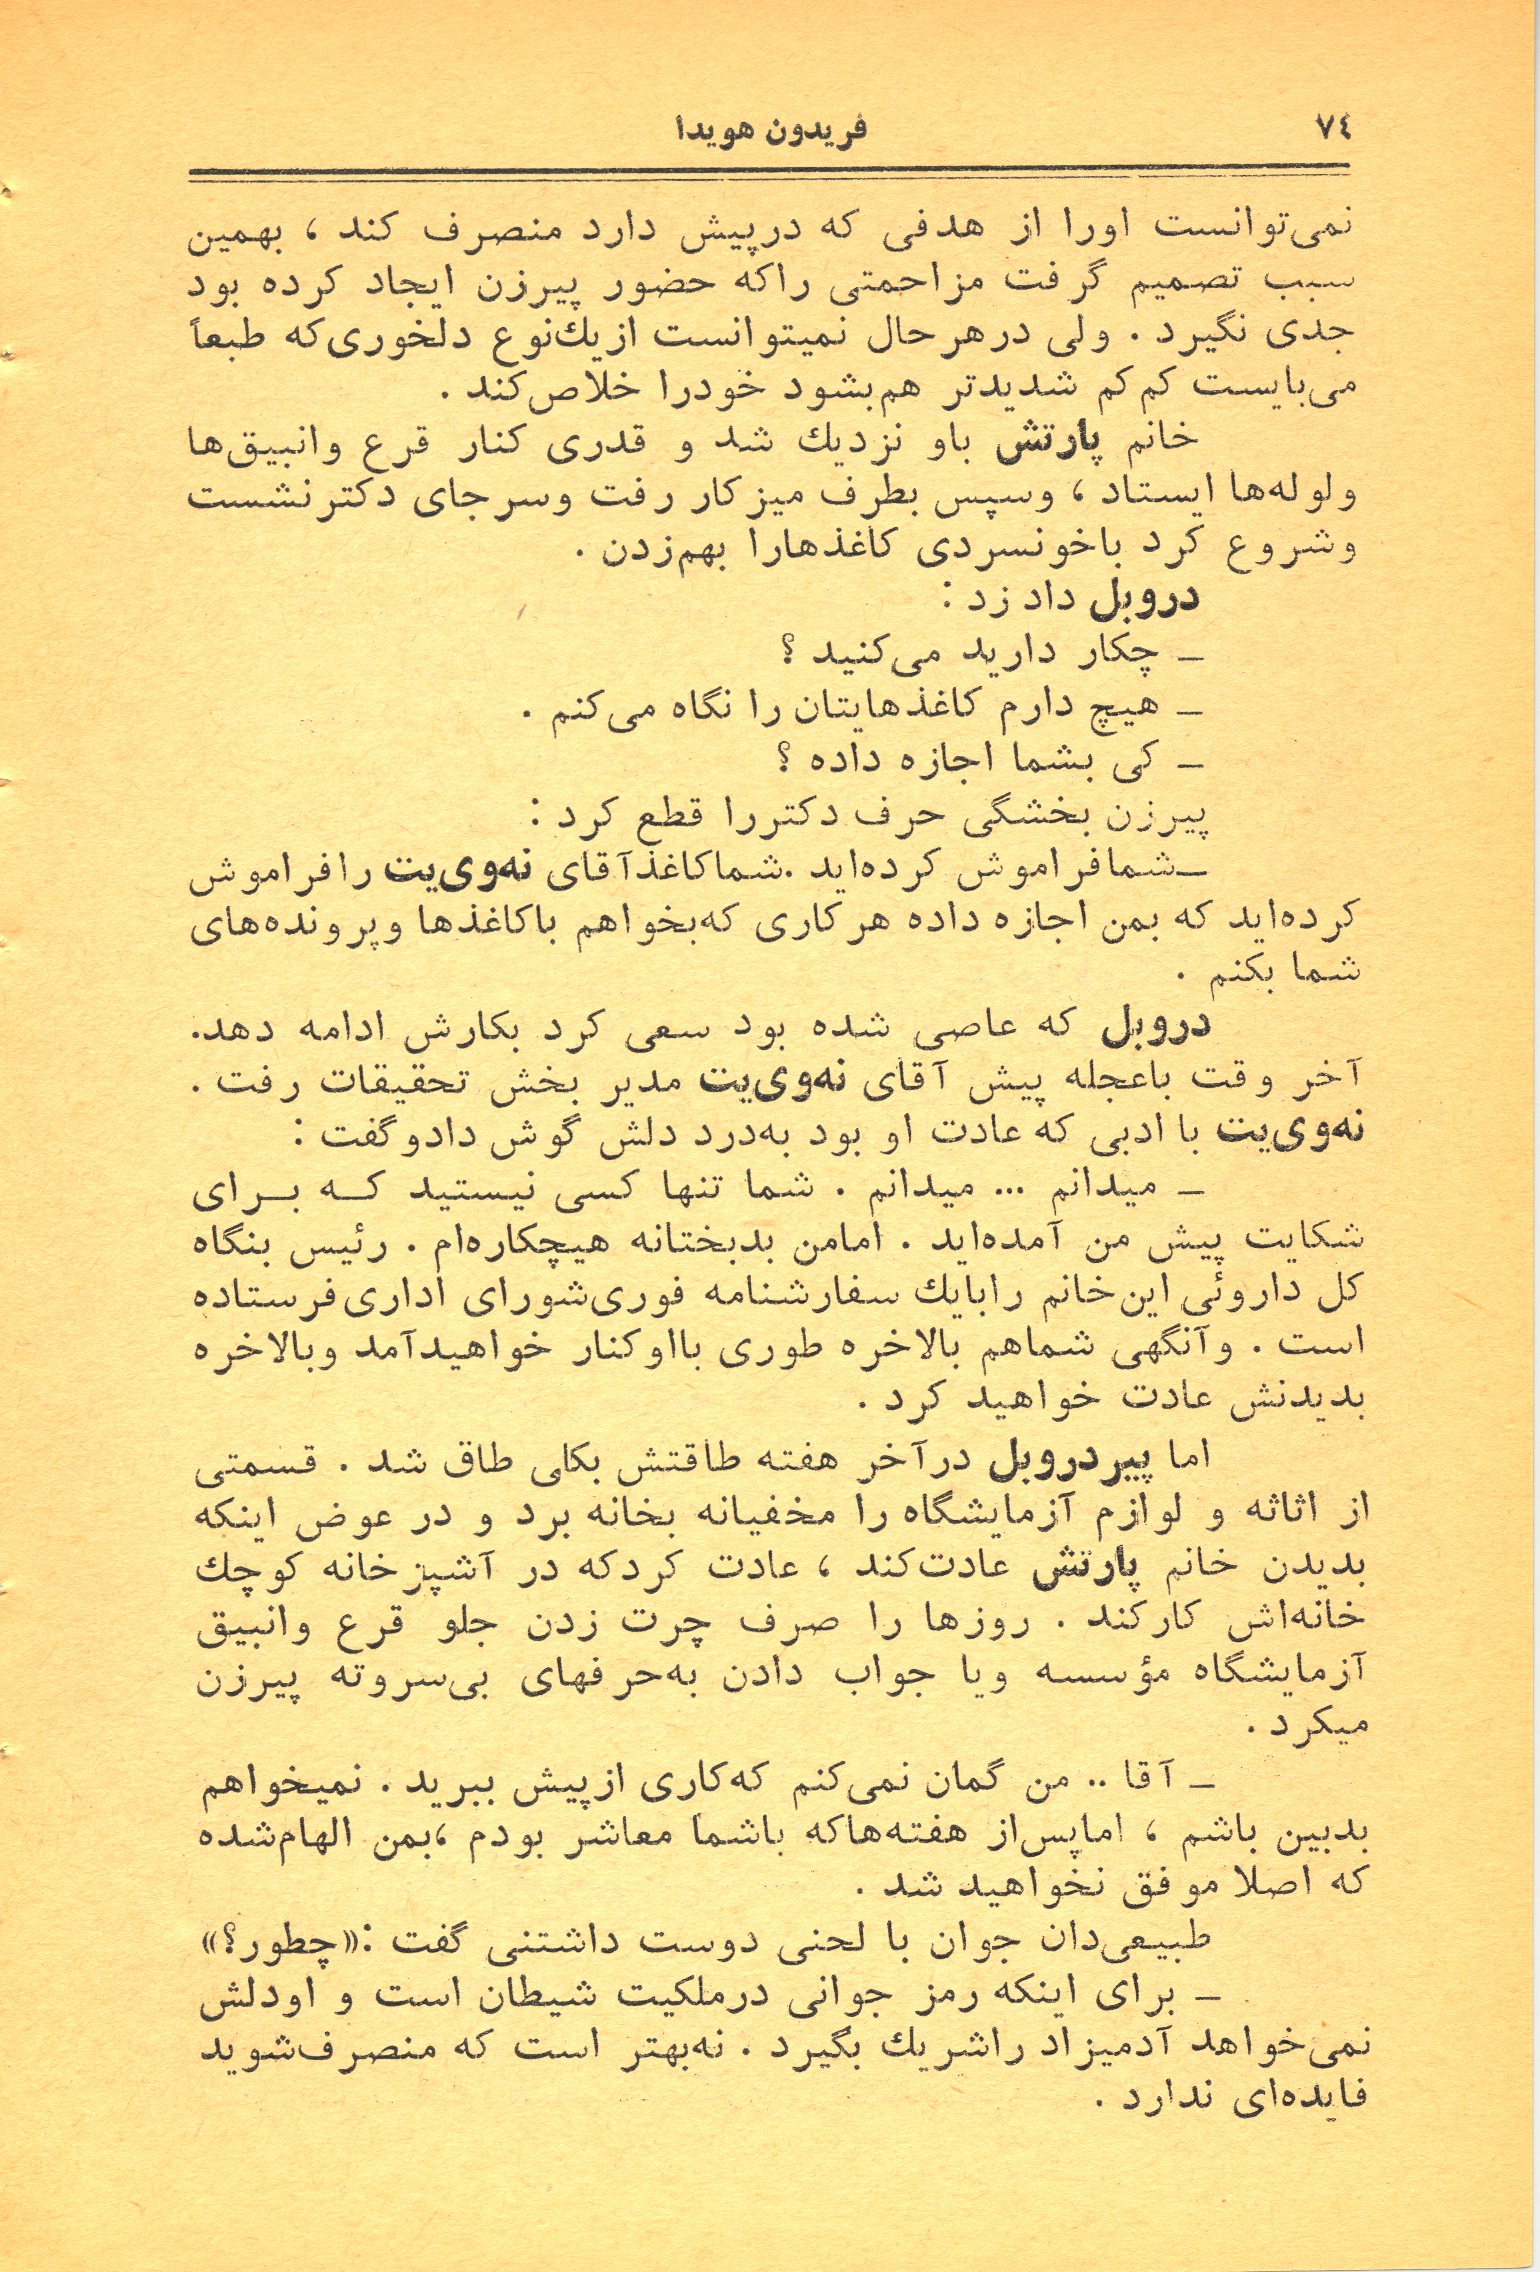 ۷۴
فریدون هویدا
نمی‌توانست اورا از هدفی که درپیش دارد منصرف کند ، بهمین
سبب تصمیم گرفت مزاحمتی راکه حضور پیرزن ایجاد کرده بود
جدی نگیرد . ولی درهرحال نمیتوانست ازیك‌نوع دلخوری‌که طبعاً
می‌بایست کم‌کم شدیدتر هم‌بشود خودرا خلاص‌کند .
خانم پارتش باو نزدیك شد و قدری کنار قرع وانبیق‌ها
ولوله‌ها ایستاد ، وسپس بطرف میزکار رفت وسرجای دکترنشست
وشروع کرد باخونسردی کاغذهارا بهم‌زدن .
دروبل داد زد :
ـ چکار دارید می‌کنید ؟
ـ هیچ دارم کاغذهایتان را نگاه می‌کنم .
ـ کی بشما اجازه داده ؟
پیرزن بخشگی حرف دکتررا قطع کرد :
ـ شمافراموش کرده‌اید .شماکاغذآقای نه‌وی‌یت رافراموش
کرده‌اید که بمن اجازه داده هرکاری که‌بخواهم باکاغذها وپرونده‌های
شما بکنم .
دروبل که عاصی شده بود سعی کرد بکارش ادامه دهد.
آخر وقت باعجله پیش آقای نه‌وی‌یت مدیر بخش تحقیقات رفت .
نه‌وی‌یت با ادبی که عادت او بود به‌درد دلش گوش دادوگفت :
ـ میدانم ... میدانم . شما تنها کسی نیستید کــه بــرای
شکایت پیش من آمده‌اید . امامن بدبختانه هیچکاره‌ام . رئیس بنگاه
کل داروئی این‌خانم رابایك سفارشنامه فوری‌شورای اداری‌فرستاده
است . وآنگهی شماهم بالاخره طوری بااوکنار خواهیدآمد وبالاخره
بدیدنش عادت خواهید کرد .
اما پیردروبل درآخر هفته طاقتش بکلی طاق شد . قسمتی
از اثاثه و لوازم آزمایشگاه را مخفیانه بخانه برد و در عوض اینکه
بدیدن خانم پارتش عادت‌کند ، عادت کردکه در آشپزخانه کوچك
خانه‌اش کارکند . روزها را صرف چرت زدن جلو قرع وانبیق
آزمایشگاه مؤسسه ویا جواب دادن به‌حرفهای بی‌سروته پیرزن
میکرد .
ـ آقا .. من گمان نمی‌کنم که‌کاری ازپیش ببرید . نمیخواهم
بدبین باشم ، اماپس‌از هفته‌هاکه باشما معاشر بودم ،بمن الهام‌شده
که اصلا موفق نخواهید شد .
طبیعی‌دان جوان با لحنی دوست داشتنی گفت :«چطور؟»
ـ برای اینکه رمز جوانی درملکیت شیطان است و اودلش
نمی‌خواهد آدمیزاد راشریك بگیرد . نه‌بهتر است که منصرف‌شوید
فایده‌ای ندارد .